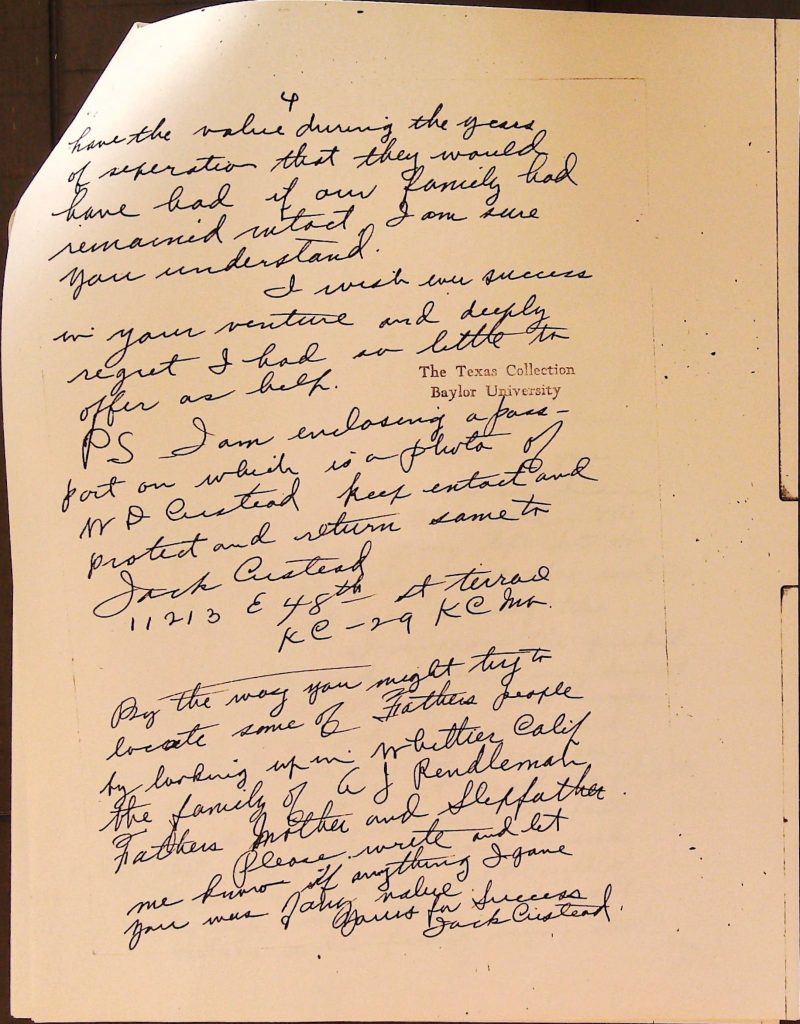 4
have the value during the years
of seperation that they would
have had if our family had
remained intact. I am sure
you understand.
I wish ever success
in your venture and deeply
regret I had so little to
offer as help.
The Texas Collection
Baylor University
PS I am enclosing a pass-
port on which is a photo of
W D Custead keep entact and
protect and return same to
Jack Custead
11213 E 48th St terrace
KC-29 KC Mo.
By the way you might try to
locate some of Fathers people
by looking up in Whittier Calif
the family of A J Rendleman
Fathers Mother and Stepfather.
Please write and let
me know if anything I gave
you was of any value
Yours for Success
Jack Custead.